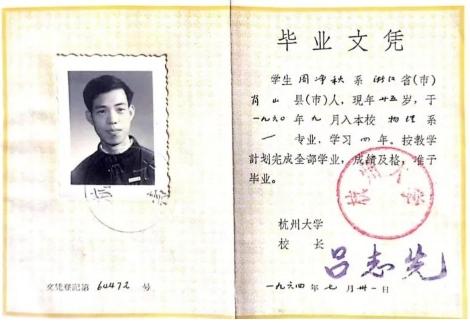 毕业文凭
学生 周净秋 系 浙江 省(市)
肖山 县(市)人，现年 廿五 岁，于
一九六〇 年 九 月入本校 物理 系
/ 专业，学习 四 年。按教学
计划完成全部学业，成绩及格，准予
毕业。
杭州大学
杭州大学
校 长 吕志先
一九六四 年 七 月 廿一 日
文凭登记第 60472 号